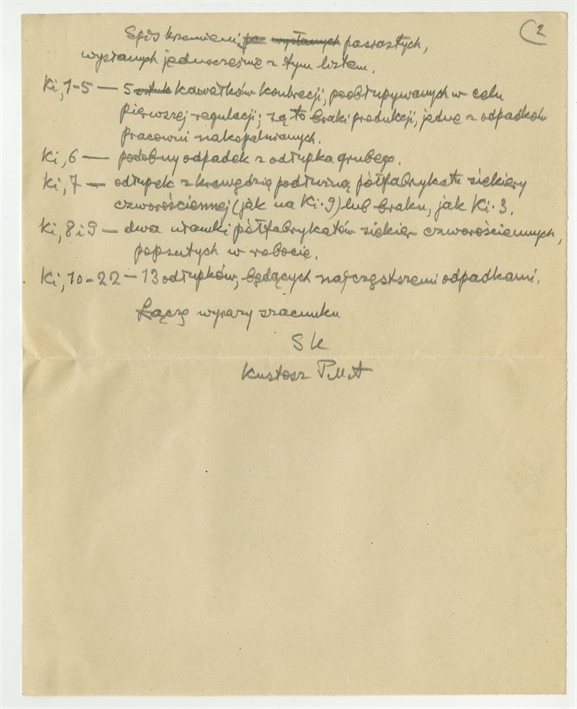 2
Spis krzemieni pasiastych,
wysłanych jednocześnie z tym listem.
Ki, 1-5 — 5 kawałków konkrecji, poobłupywanych w celu
pierwszej regulacji; są to braki produkcji, jedne z odpadków
pracowni nakopalnianych.
Ki, 6 — podobny odpadek z odłupka grubego.
Ki, 7 — odłupek z krawędzią podłużną półfabrykatu siekiery
czworościennej (jak na Ki. 9) lub braku, jak Ki. 3.
Ki, 8 i 9 — dwa ułamki półfabrykatów siekier czworościennych,
popsutych w robocie.
Ki, 10-22 — 13 odłupków, będących najczęstszemi odpadkami.
Łączę wyrazy szacunku
SK
Kustosz PMA